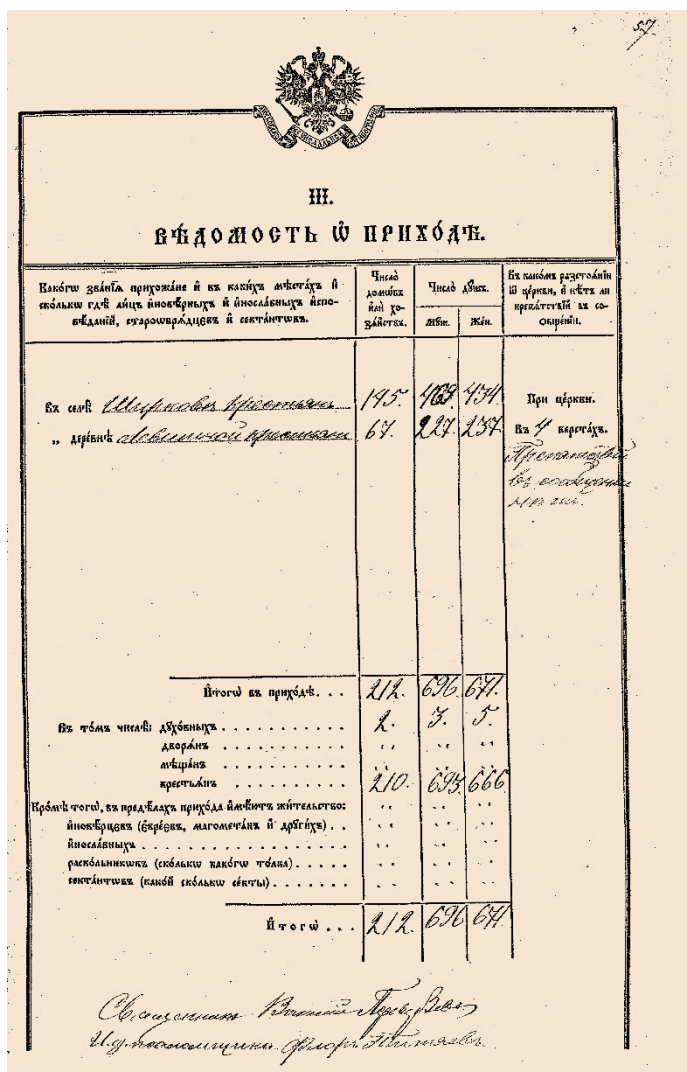 57
III.
ВѢДОМОСТЬ Ѿ ПРИХО́ДѢ.
Какóгѡ звáнїѧ прихожáне и҆ въ каки́хъ мѣстáхъ и҆
скóлькѡ гдѣ̀ ли́цъ и҆новѣ́рныхъ и҆ и҆нослáвныхъ и҆спо-
вѣ́данїй, старообрѧ́дцевъ и҆ сектáнтѡвъ.
Числò
домѡ́въ
и҆лѝ хо-
зѧ́йствъ.
Числò дꙋ́шъ.
Мꙋж.
Жен.
Въ какóмъ разстоѧ́нїи
ѿ це́ркви, и҆ нѣ́тъ ли
препѧ́тствїй въ со-
ѻбще́нїи.
Въ селѣ̀ Ширковѣ крестьянъ 145. 469. 434. При це́ркви.
„ дере́внѣ крестьянъ 67. 227. 237. Въ 4 верстáхъ.
Препятствій
въ сообщеніи
И҆тогѡ̀ въ прихо́дѣ. . . 212. 696. 671.
Въ то́мъ числѣ̀: дꙋхо́вныхъ . . . . . . . . . . . 2. 3. 5.
дворѧ́нъ . . . . . . . . . . . „ „ „
мѣща́нъ . . . . . . . . . . . „ „ „
крестьѧ́нъ . . . . . . . . . . 210. 693. 666.
Кро́мѣ тогѡ̀, въ предѣ́лахъ прихо́да и҆мѣ́ютъ жи́тельство:
и҆новѣ́рцевъ (є҆вре́евъ, магомета́нъ и҆ дрꙋги́хъ) . . „ „ „
и҆носла́вныхъ . . . . . . . . . . . . . . . . . . „ „ „
раско́льникѡвъ (ско́лькѡ како́гѡ то́лка) . . . . . „ „ „
секта́нтѡвъ (како́й ско́лькѡ се́кты) . . . . . . . „ „ „
И҆тогѡ̀ . . . 212. 696 671
Священникъ Василій
И. д. псаломщика Флоръ